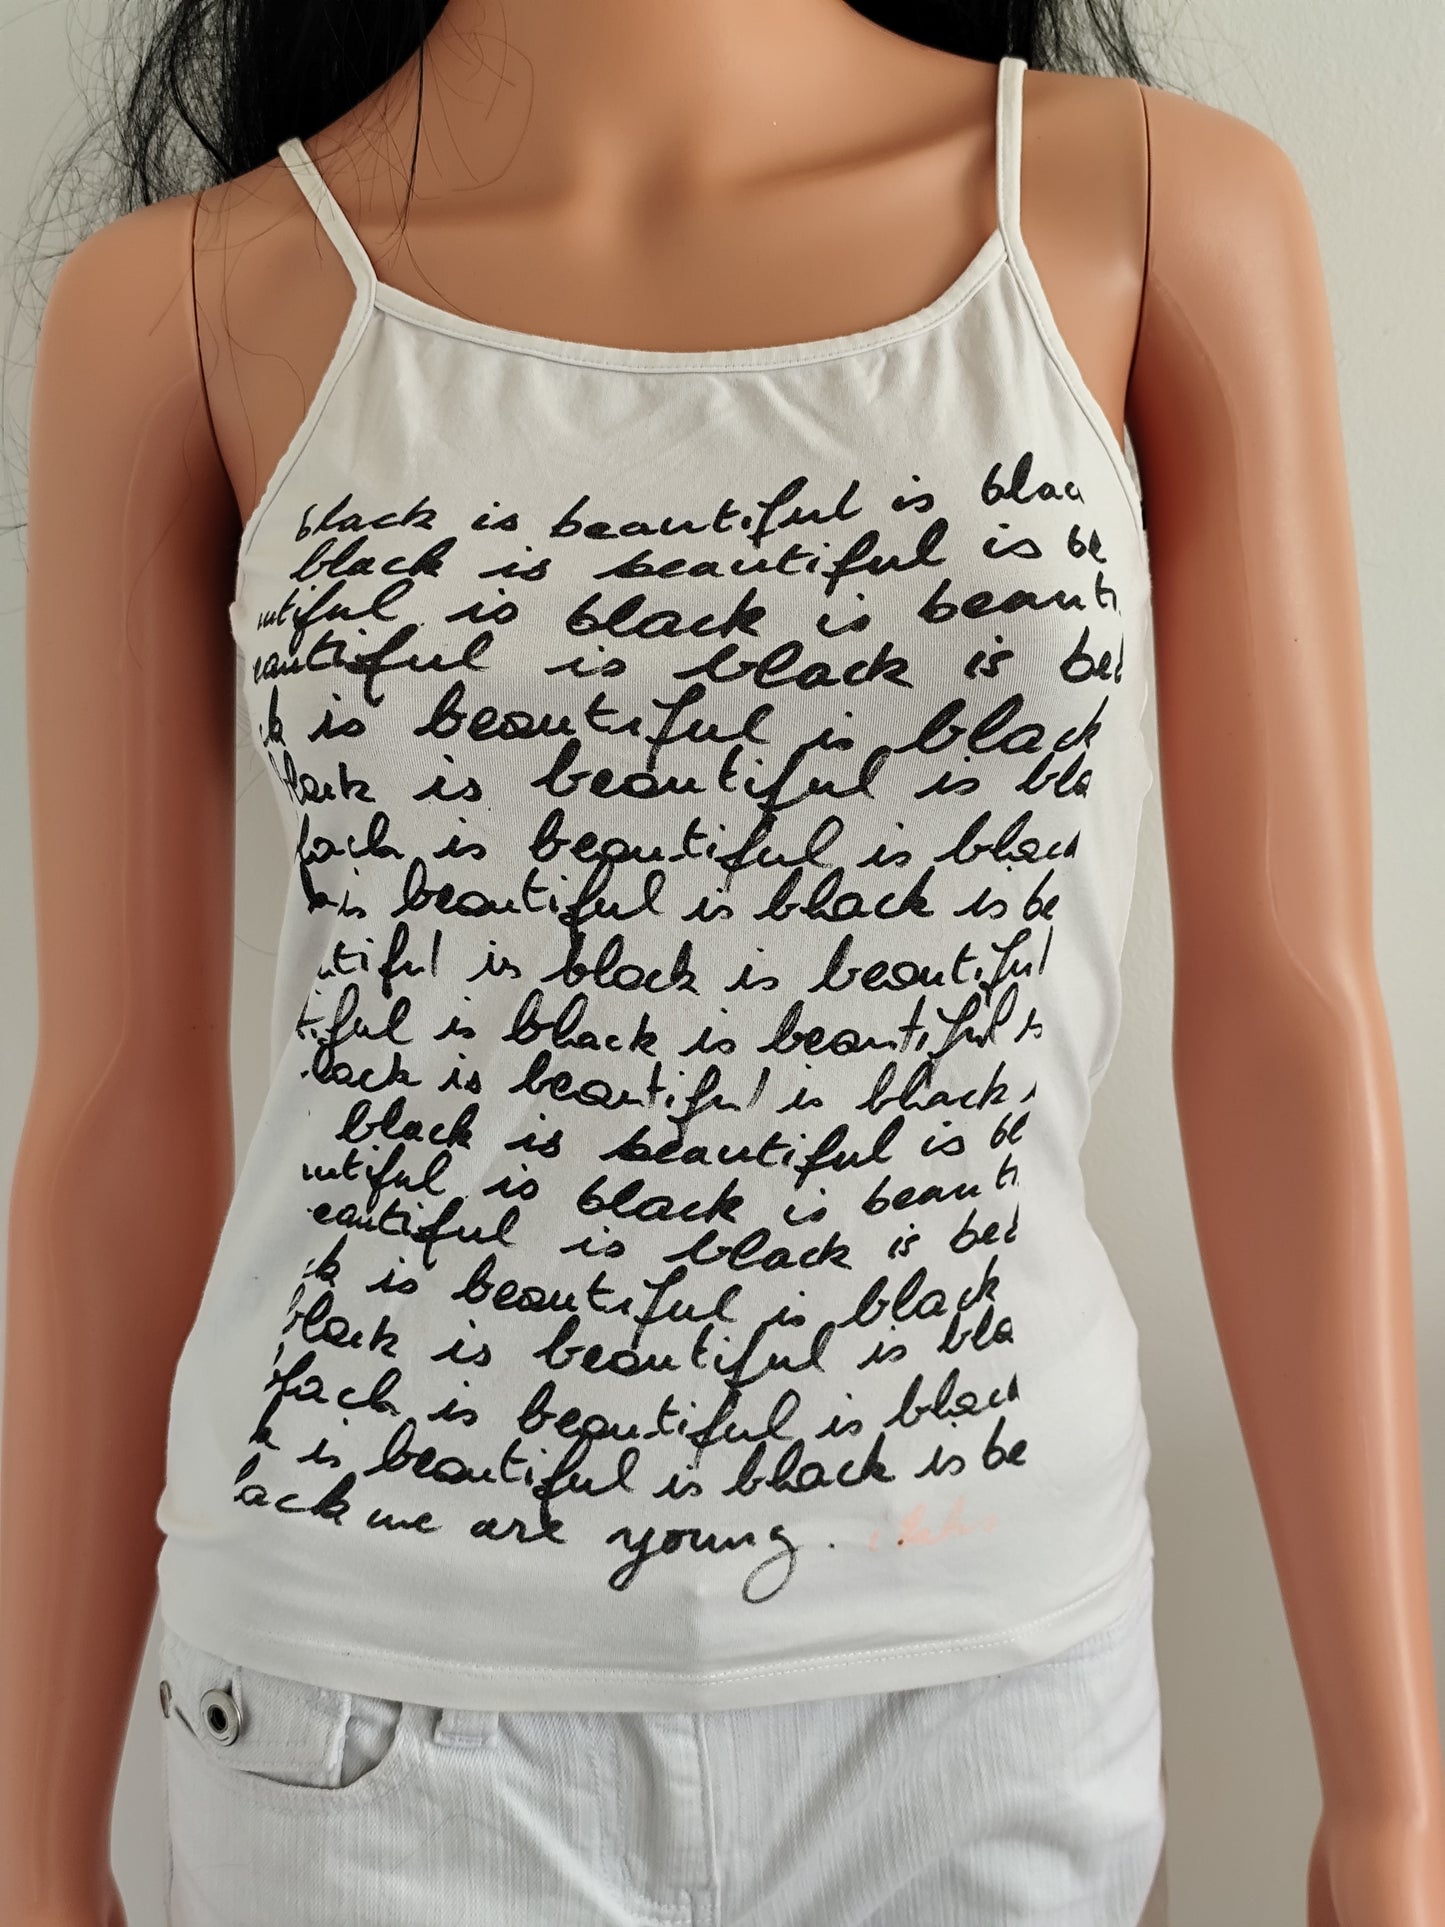 black is beautiful is blac
black is beautiful is be
utiful is black is beauti
eautiful is black is bea
ck is beautiful is black
black is beautiful is bla
lack is beautiful is black
k is beautiful is black is be
utiful is black is beautiful
tiful is black is beautiful is
lack is beautiful is black
black is beautiful is be
utiful is black is beauti
eautiful is black is bea
ck is beautiful is black
black is beautiful is bla
lack is beautiful is black
k is beautiful is black is be
lack we are young.